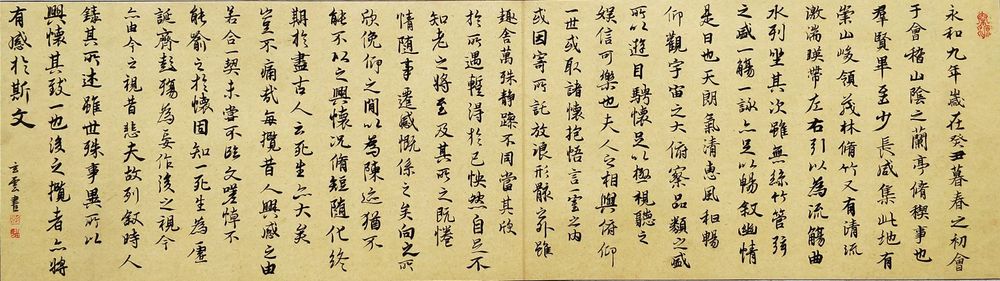 永和九年歲在癸丑暮春之初會
于會稽山陰之蘭亭脩稧事也
羣賢畢至少長咸集此地有
崇山峻領茂林脩竹又有清流
激湍暎帶左右引以為流觴曲
水列坐其次雖無絲竹管弦
之盛一觴一詠亦足以暢敘幽情
是日也天朗氣清惠風和暢
仰觀宇宙之大俯察品類之盛
所以遊目騁懷足以極視聽之
娛信可樂也夫人之相與俯仰
一世或取諸懷抱悟言一室之內
或因寄所託放浪形骸之外雖
趣舍萬殊靜躁不同當其欣
於所遇輊得於己怏然自足不
知老之將至及其所之既惓
情隨事遷感慨係之矣向之所
欣俛仰之間以為陳迹猶不
能不以之興懷況脩短隨化終
期於盡古人云死生亦大矣
豈不痛哉每攬昔人興感之由
若合一契未嘗不臨文嗟悼不
能喻之於懷固知一死生為虛
誕齊彭殤為妄作後之視今
亦由今之視昔悲夫故列敘時人
錄其所述雖世殊事異所以
興懷其致一也後之攬者亦將
有感於斯文
玄雲書